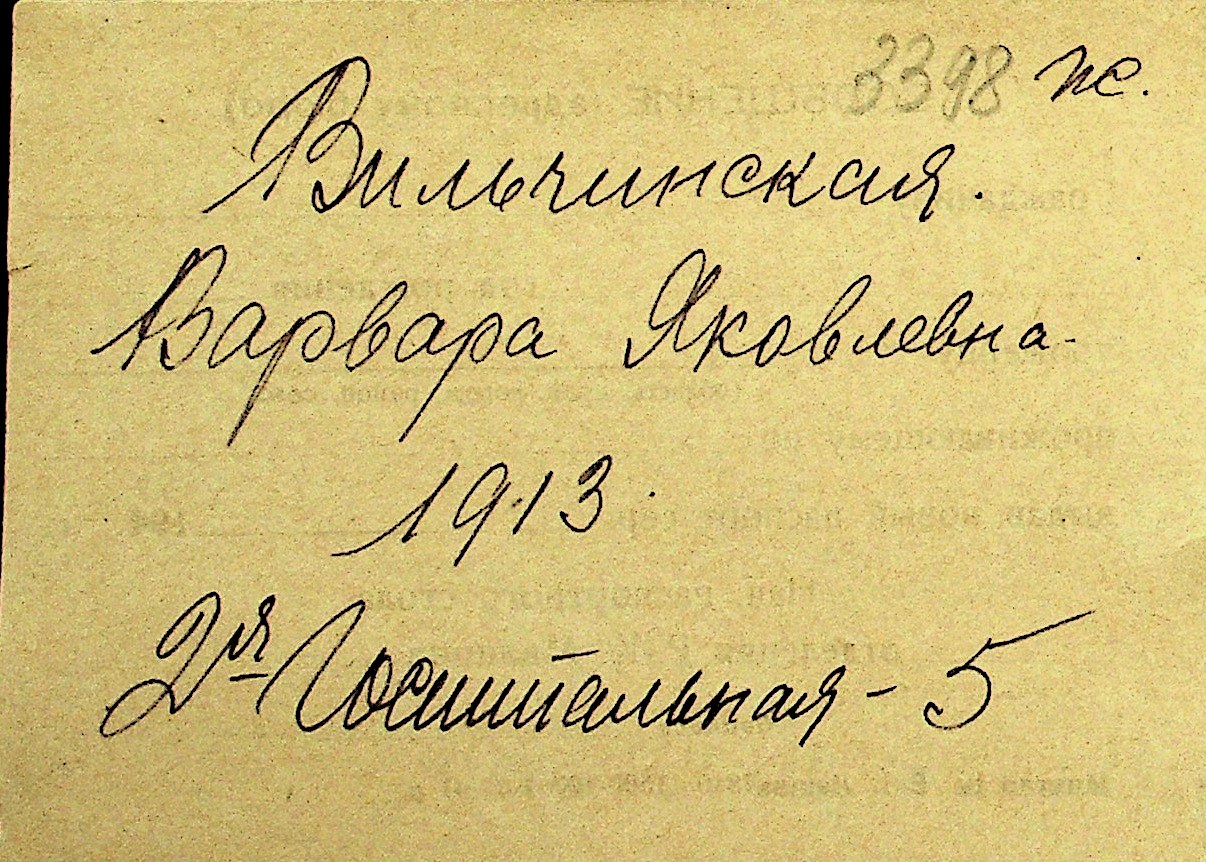 3398 пе.
Вильчинская.
Варвара Яковлевна.
1913.
2я Госпитальная - 5